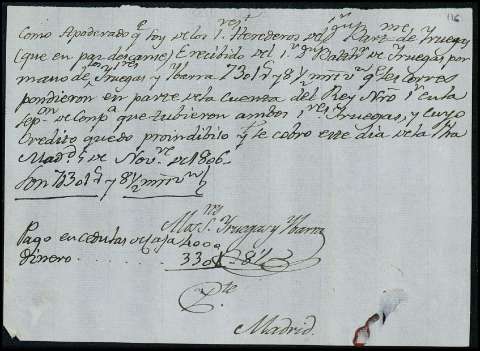 116
Como Apoderado q.e soy de los S.res Herederos del S.r
(que en paz descanse) é recibido del S.r de Yruegas por
mano de Yruegas y Ybarra 7301 y 8½ m.rs v.n q.e les corres
pondieron en parte de la Cuenta del Rey Nro S.r en la
de Comp.a que tubieron ambos S.res Yruegas, y cuyo
Credito quedó proindibiso y se cobró este dia de la fha
Madrid de Nov.re de 1806
Son 7301 y 8½ m.rs v.n
Yruegas y Ybarra
Pago en cedulas de caja 4000
dinero 3301 8½
P.te
Madrid.